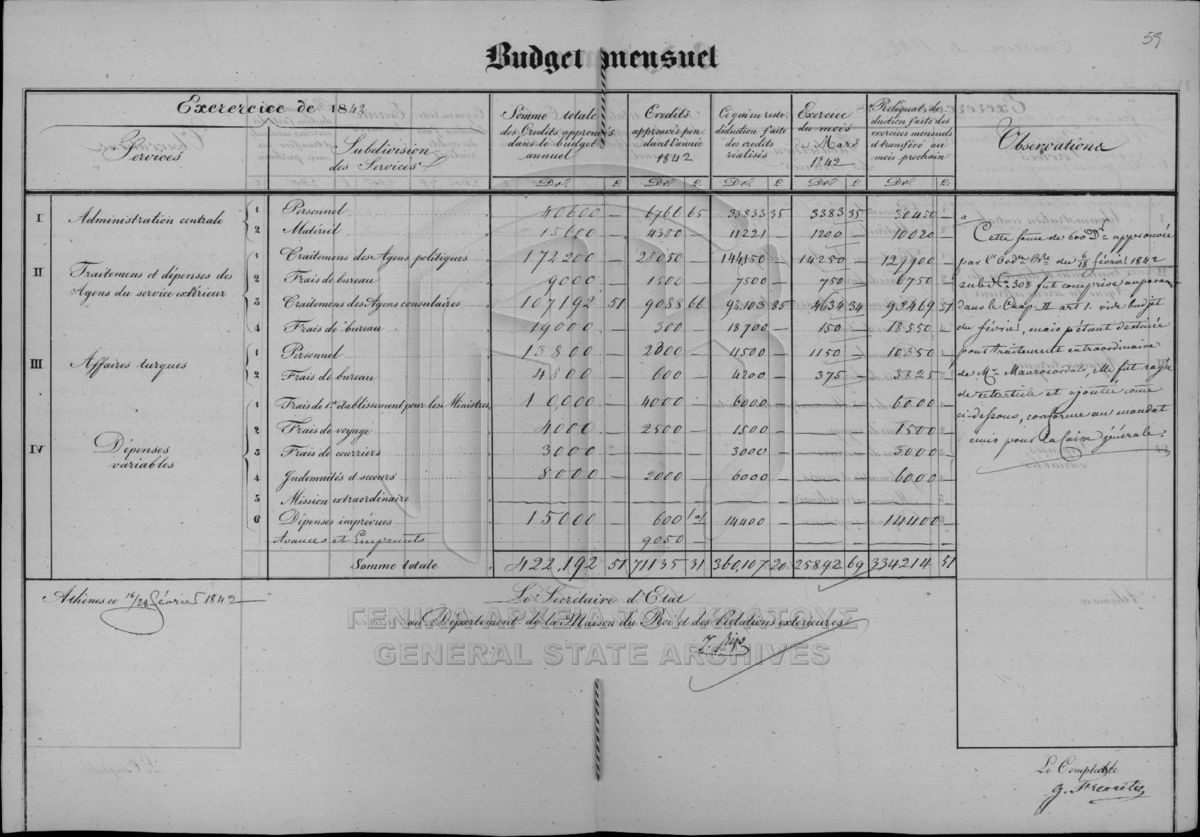 59
Budget mensuel
Exerercice de 1842
Services
Subdivision des Services
Somme totale des Credits approuvés dans le budget annuel
Crédits approuvés pendant l'année 1842
Ce qui en reste, déduction faite des credits réalisés
Exercice du mois Mars 1842
Reliquat, déduction faite des exercices mensuels et transféré au mois prochain
Observations
Dol. L. Dol. L. Dol. L. Dol. L. Dol. L.
I Administration centrale 1 Personnel 40600 — 6766 65 33833 35 3383 35 30450 —
2 Matériel 15600 — 4350 — 11221 — 1200 — 10020 —
II Traitemens et dépenses des Agens du service extérieur 1 Traitemens des Agens politiques 172,200 — 28050 — 144150 — 14250 — 129900 —
2 Frais de bureau 9000 — 1500 — 7500 — 750 — 6750 —
3 Traitemens des Agens consulaires 107192 51 9088 66 98103 85 4634 34 93469 51
4 Frais de bureau 19000 — 300 — 18700 — 150 — 18550 —
III Affaires turques 1 Personnel 13800 — 2300 — 11500 — 1150 — 10350 —
2 Frais de bureau 4800 — 600 — 4200 — 375 — 3825 —
IV Dépenses variables 1 Frais de 1er établissement pour les Ministres 10,000 — 4000 — 6000 — — — 6000 —
2 Frais de voyage 4000 — 2500 — 1500 — — — 1500 —
3 Frais de courriers 3000 — — — 3000 — — — 3000 —
4 Indemnités et secours 8000 — 2000 — 6000 — — — 6000 —
5 Mission extraordinaire — — — — —
6 Dépenses imprévues 15000 — 600 (a) 14400 — — — 14400 —
Avances et Emprunts 9050 —
Somme totale 422,192 51 71135 31 360,107 20 25892 69 334214 51
a
Cette somme de 600 Dr. approuvée
par l'Ordce Rle du 6/18 février 1842
sub No. 308 fut comprise auparavant
dans le Chap. II art 1. vide budget
du février, mais n'étant destinée
pour traitement extraordinaire
de Mr. Maurocordato, elle fut rayée
de cet article et ajoutée comme
ci-dessous, conforme au mandat
émis pour la Caisse générale.
Athènes ce 16/28 février 1842
Le Secrétaire d'Etat
au Département de la Maison du Roi et des Relations extérieures
ΓΕΝΙΚΑ ΑΡΧΕΙΑ ΤΟΥ ΚΡΑΤΟΥΣ
GENERAL STATE ARCHIVES
Le Comptable